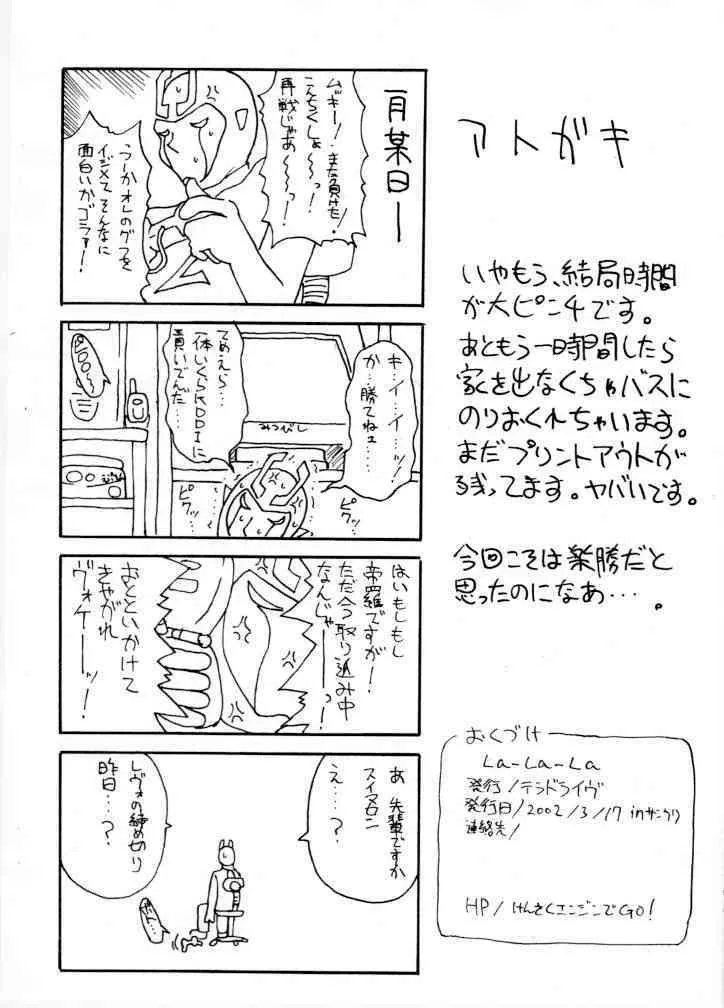 アトガキ
いやもう、結局時間
が大ピンチです。
あともう一時間したら
家を出なくちゃバスに
のりおくれちゃいます。
まだプリントアウトが
残ってます。ヤバいです。
今回こそは楽勝だと
思ったのになあ・・・・。
一月某日ー
ムギー!また負けた!
こんちくしょ〜〜っ!
再戦じゃあ〜〜っ!
うーかオレのグフを
イジメてそんなに
面白いかゴラァー!
キ・イ・イ・・ッ!
か・・勝てねェ・・・・
てめえら・・・
一体いくらKDDIに
貢いでんだ・・・
みつびし
ピクッ・・
ピクッ・・
はいもしもし
帝羅ですが!
ただ今取り込み中
なんじゃーーっ!
おとといかけて
きやがれ
ヴォケーーッ!
あ 先輩ですか
スイマセン
え・・・・?
レヴォの締め切り
昨日・・・?
おくづけ
La-La-La
発行/テラドライヴ
発行日/2002/3/17 inサンクリ
連絡先/
HP/けんさくエンジンでGO!